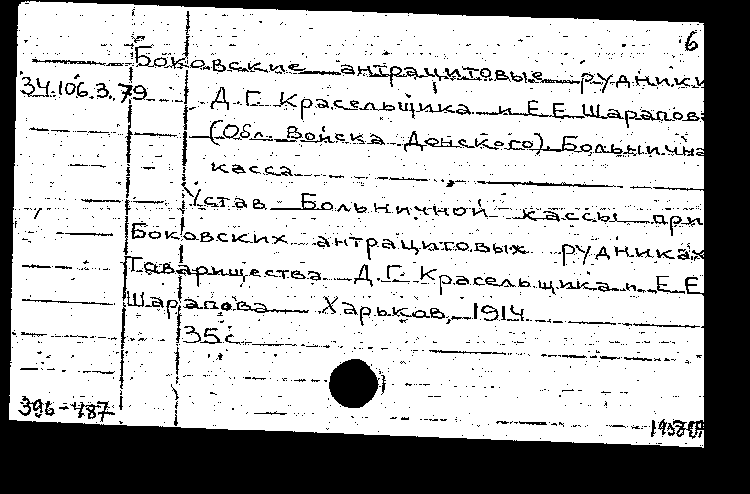 6
Боковские антрацитовые рудники
34.106.3.79 Д.Г. Красельщика и Е.Е. Шарапова
(Обл. Войска Донского). Больнична
касса
Устав Больничной кассы при
Боковских антрацитовых рудниках
Товарищества Д.Г. Красельщика и Е.Е.
Шарапова Харьков, 1914
35с
396-487